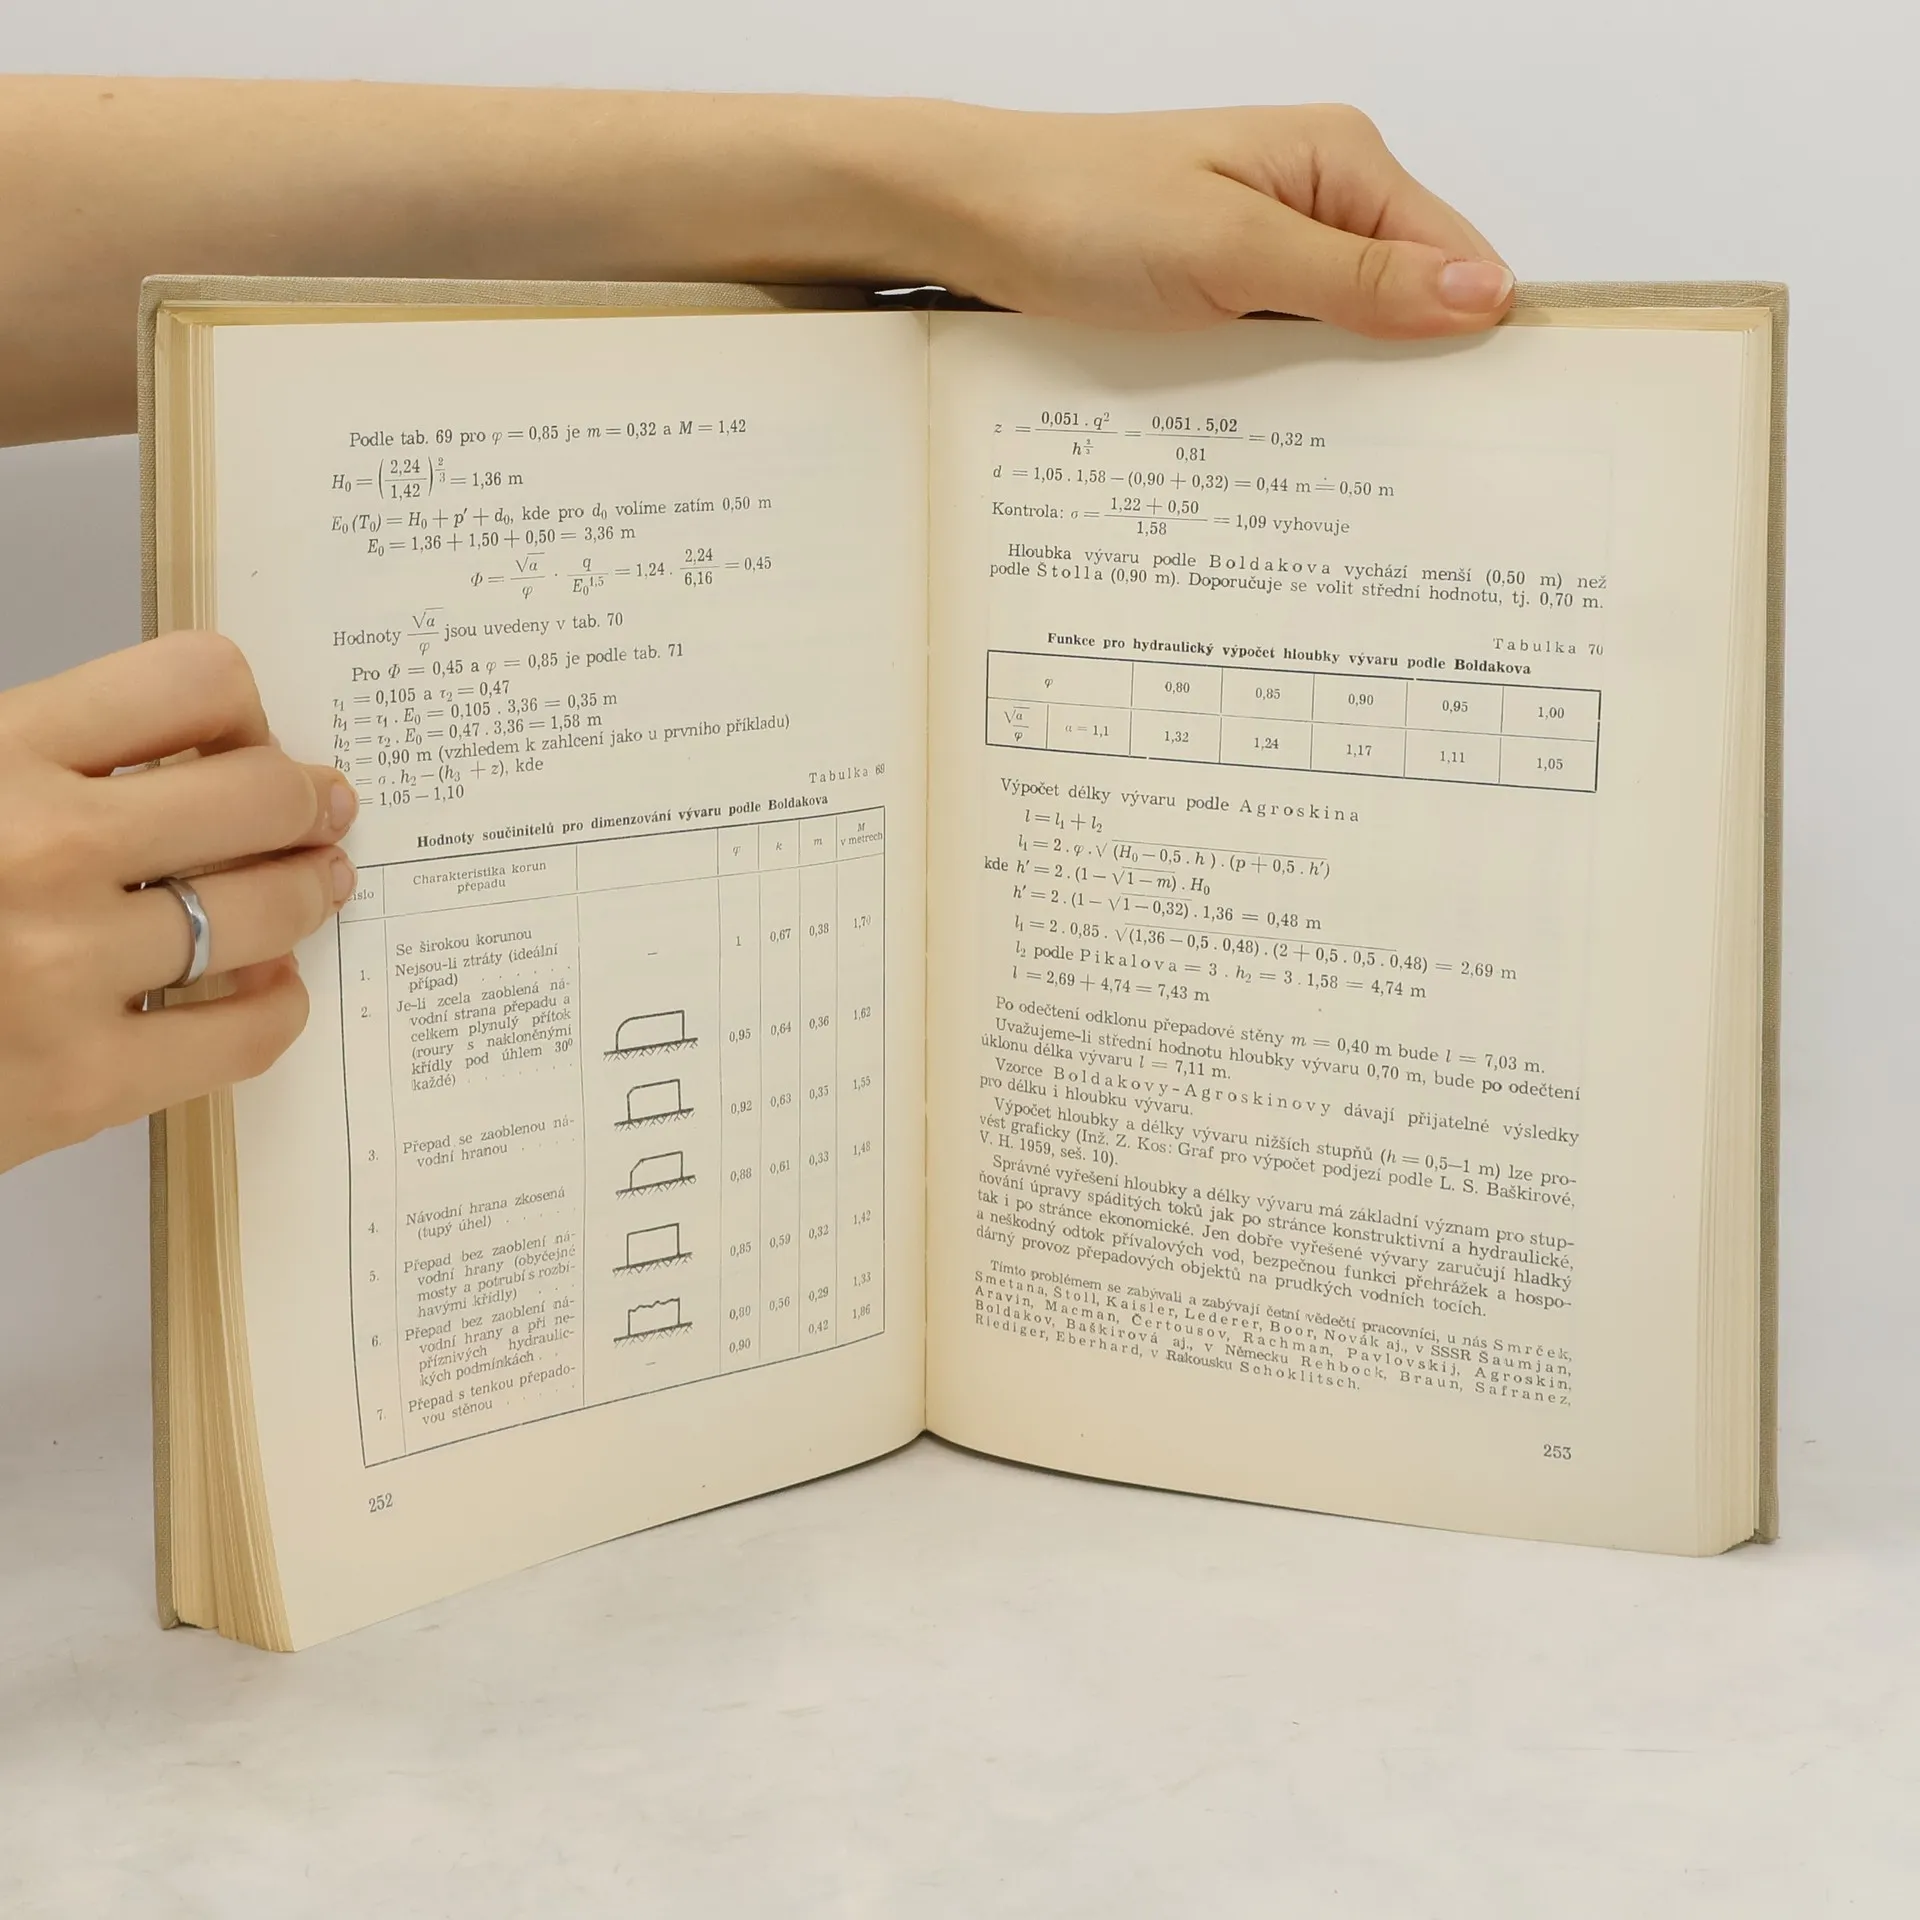 Podle tab. 69 pro φ = 0,85 je m = 0,32 a M = 1,42
H₀ = (2,24 / 1,42)^(2/3) = 1,36 m
E₀ (T₀) = H₀ + p′ + d₀, kde pro d₀ volíme zatím 0,50 m
E₀ = 1,36 + 1,50 + 0,50 = 3,36 m
Φ = √α / φ . q / E₀^1,5 = 1,24 . 2,24 / 6,16 = 0,45
Hodnoty √α / φ jsou uvedeny v tab. 70
Pro Φ = 0,45 a φ = 0,85 je podle tab. 71
τ₁ = 0,105 a τ₂ = 0,47
h₁ = τ₁ . E₀ = 0,105 . 3,36 = 0,35 m
h₂ = τ₂ . E₀ = 0,47 . 3,36 = 1,58 m
h₃ = 0,90 m (vzhledem k zahlcení jako u prvního příkladu)
= σ . h₂ — (h₃ + z), kde
= 1,05 — 1,10
Tabulka 69
Hodnoty součinitelů pro dimenzování vývaru podle Boldakova
Charakteristika korun přepadu φ k m M v metrech
Se širokou korunou
1. Nejsou-li ztráty (ideální
případ) — 1 0,67 0,38 1,70
2. Je-li zcela zaoblená ná-
vodní strana přepadu a
celkem plynulý přítok
(roury s nakloněnými
křídly pod úhlem 30⁰
každé) 0,95 0,64 0,36 1,62
3. Přepad se zaoblenou ná-
vodní hranou 0,92 0,63 0,35 1,55
4. Návodní hrana zkosená
(tupý úhel) 0,88 0,61 0,33 1,48
5. Přepad bez zaoblení ná-
vodní hrany (obyčejné
mosty a potrubí s rozbí-
havými křídly) 0,85 0,59 0,32 1,42
6. Přepad bez zaoblení ná-
vodní hrany a při ne-
příznivých hydraulic-
kých podmínkách 0,80 0,56 0,29 1,33
7. Přepad s tenkou přepado-
vou stěnou — 0,90 0,42 1,86
252
z = 0,051 . q² / h^(3/2) = 0,051 . 5,02 / 0,81 = 0,32 m
d = 1,05 . 1,58 — (0,90 + 0,32) = 0,44 m ≐ 0,50 m
Kontrola: σ = 1,22 + 0,50 / 1,58 = 1,09 vyhovuje
Hloubka vývaru podle Boldakova vychází menší (0,50 m) než
podle Štolla (0,90 m). Doporučuje se volit střední hodnotu, tj. 0,70 m.
Tabulka 70
Funkce pro hydraulický výpočet hloubky vývaru podle Boldakova
φ 0,80 0,85 0,90 0,95 1,00
√α / φ α = 1,1 1,32 1,24 1,17 1,11 1,05
Výpočet délky vývaru podle Agroskina
l = l₁ + l₂
l₁ = 2 . φ . √(H₀ — 0,5 . h ) . (p + 0,5 . h′)
kde h′ = 2 . (1 — √1 — m) . H₀
h′ = 2 . (1 — √1 — 0,32) . 1,36 = 0,48 m
l₁ = 2 . 0,85 . √(1,36 — 0,5 . 0,48) . (2 + 0,5 . 0,5 . 0,48) = 2,69 m
l₂ podle Pikalova = 3 . h₂ = 3 . 1,58 = 4,74 m
l = 2,69 + 4,74 = 7,43 m
Po odečtení odklonu přepadové stěny m = 0,40 m bude l = 7,03 m.
Uvažujeme-li střední hodnotu hloubky vývaru 0,70 m, bude po odečtení
úklonu délka vývaru l = 7,11 m.
Vzorce Boldakovy-Agroskinovy dávají přijatelné výsledky
pro délku i hloubku vývaru.
Výpočet hloubky a délky vývaru nižších stupňů (h = 0,5—1 m) lze pro-
vést graficky (Inž. Z. Kos: Graf pro výpočet podjezí podle L. S. Baškirové,
V. H. 1959, seš. 10).
Správné vyřešení hloubky a délky vývaru má základní význam pro stup-
ňování úpravy spáditých toků jak po stránce konstruktivní a hydraulické,
tak i po stránce ekonomické. Jen dobře vyřešené vývary zaručují hladký
a neškodný odtok přívalových vod, bezpečnou funkci přehrážek a hospo-
dárný provoz přepadových objektů na prudkých vodních tocích.
Tímto problémem se zabývali a zabývají četní vědečtí pracovníci, u nás Smrček,
Smetana, Štoll, Kaisler, Lederer, Boor, Novák aj., v SSSR Šaumjan,
Aravin, Macman, Čertousov, Rachman, Pavlovskij, Agroskin,
Boldakov, Baškirová aj., v Německu Rehbock, Braun, Safranez,
Riediger, Eberhard, v Rakousku Schoklitsch.
253